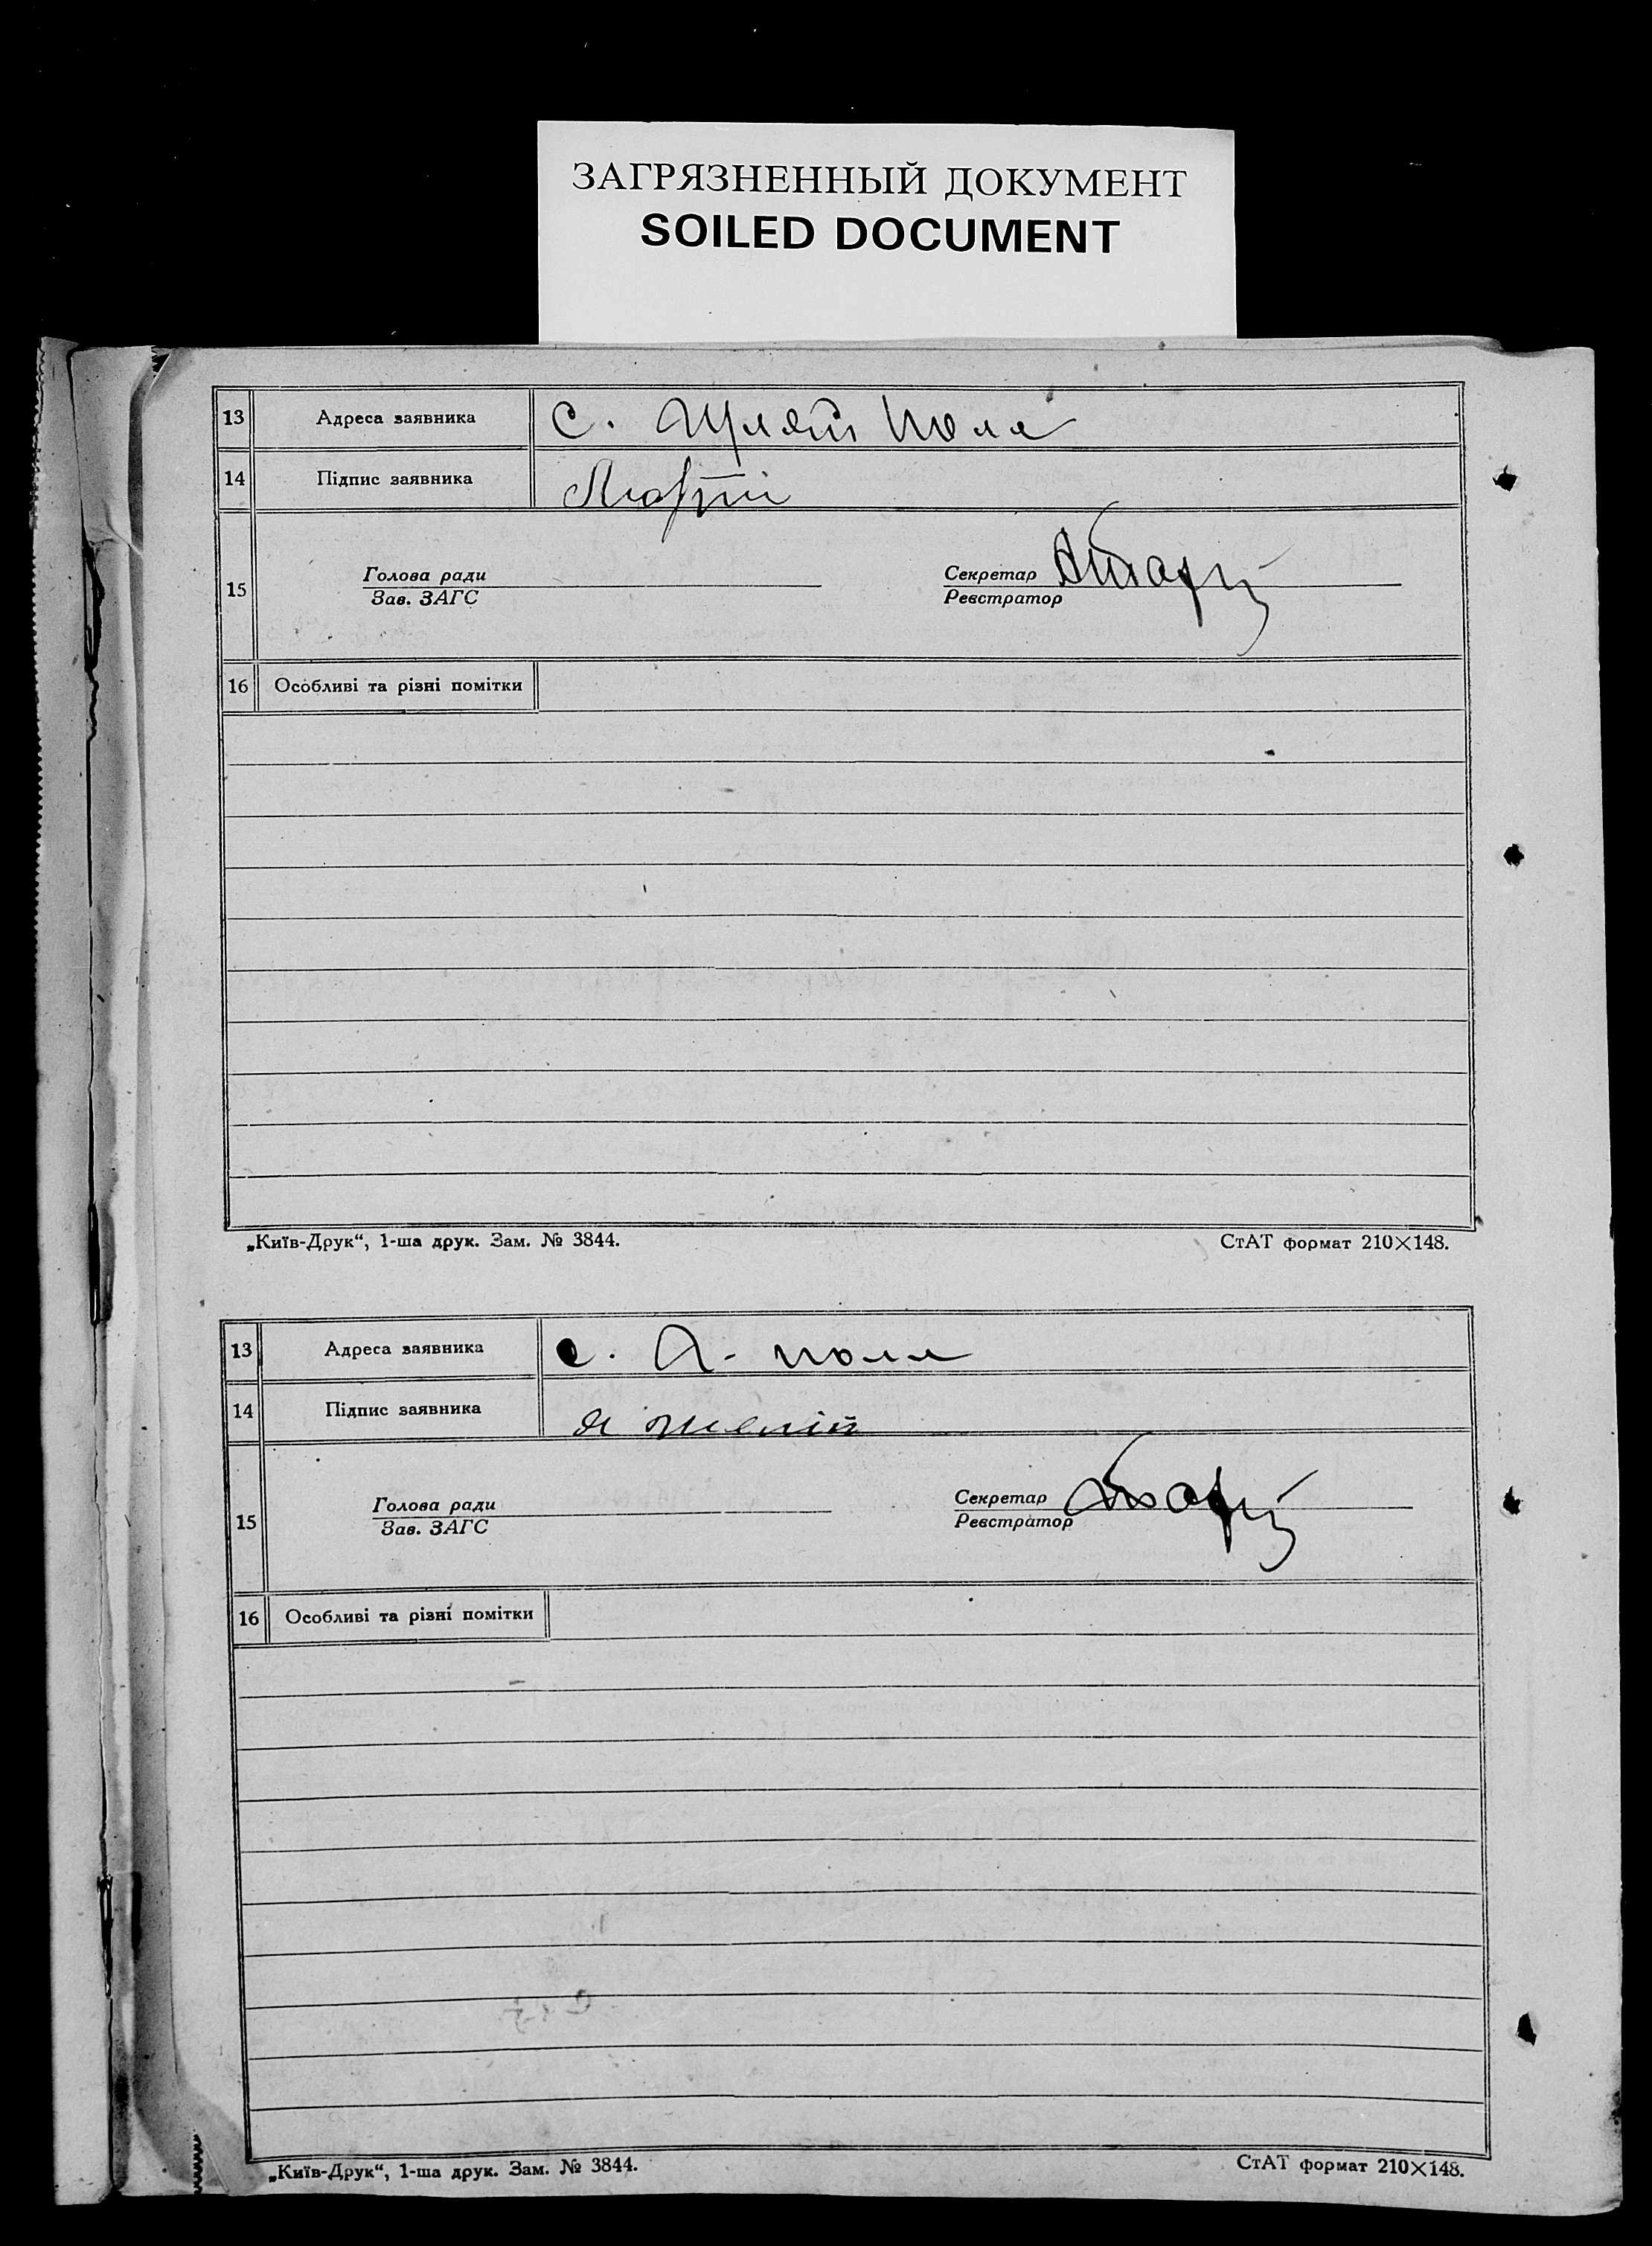 ЗАГРЯЗНЕННЫЙ ДОКУМЕНТ
SOILED DOCUMENT
13 Адреса заявника с. поле
14 Підпис заявника
Голова ради Секретар
15
Зав. ЗАГС Реєстратор
16 Особливі та різні помітки
„Київ-Друк“, 1-ша друк. Зам. № 3844. СтАТ формат 210×148.
13 Адреса заявника с. поле
14 Підпис заявника
Голова ради Секретар
15
Зав. ЗАГС Реєстратор
16 Особливі та різні помітки
„Київ-Друк“, 1-ша друк. Зам. № 3844. СтАТ формат 210×148.